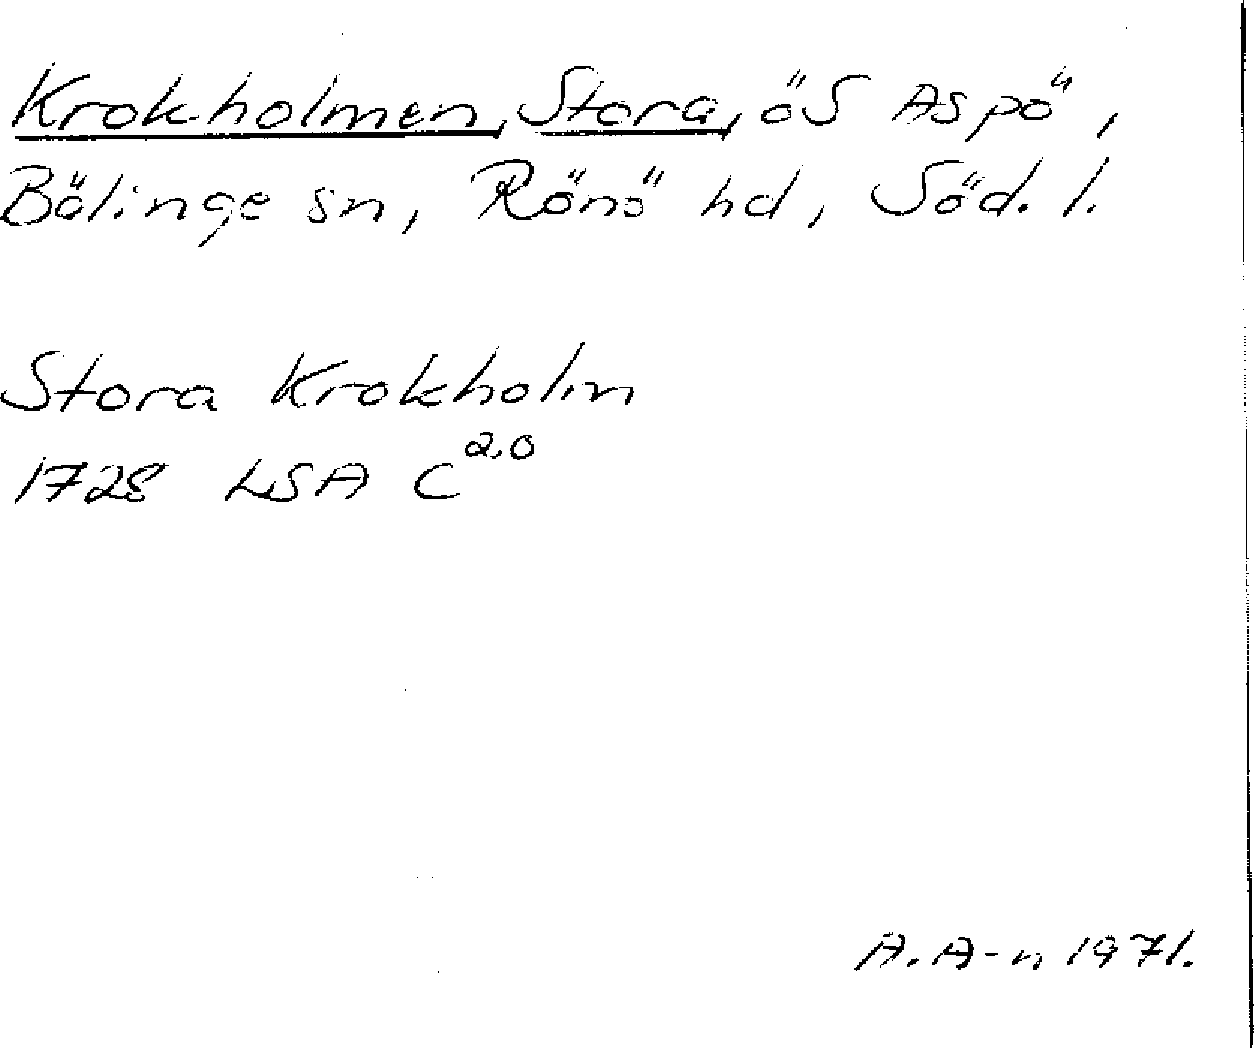 Krokholmen, Stora, ö S Aspö,
Bälinge sn, Rönö hd, Söd. l.
Stora Krokholm
1728 LSA C 2,0
A. A-n 1971.